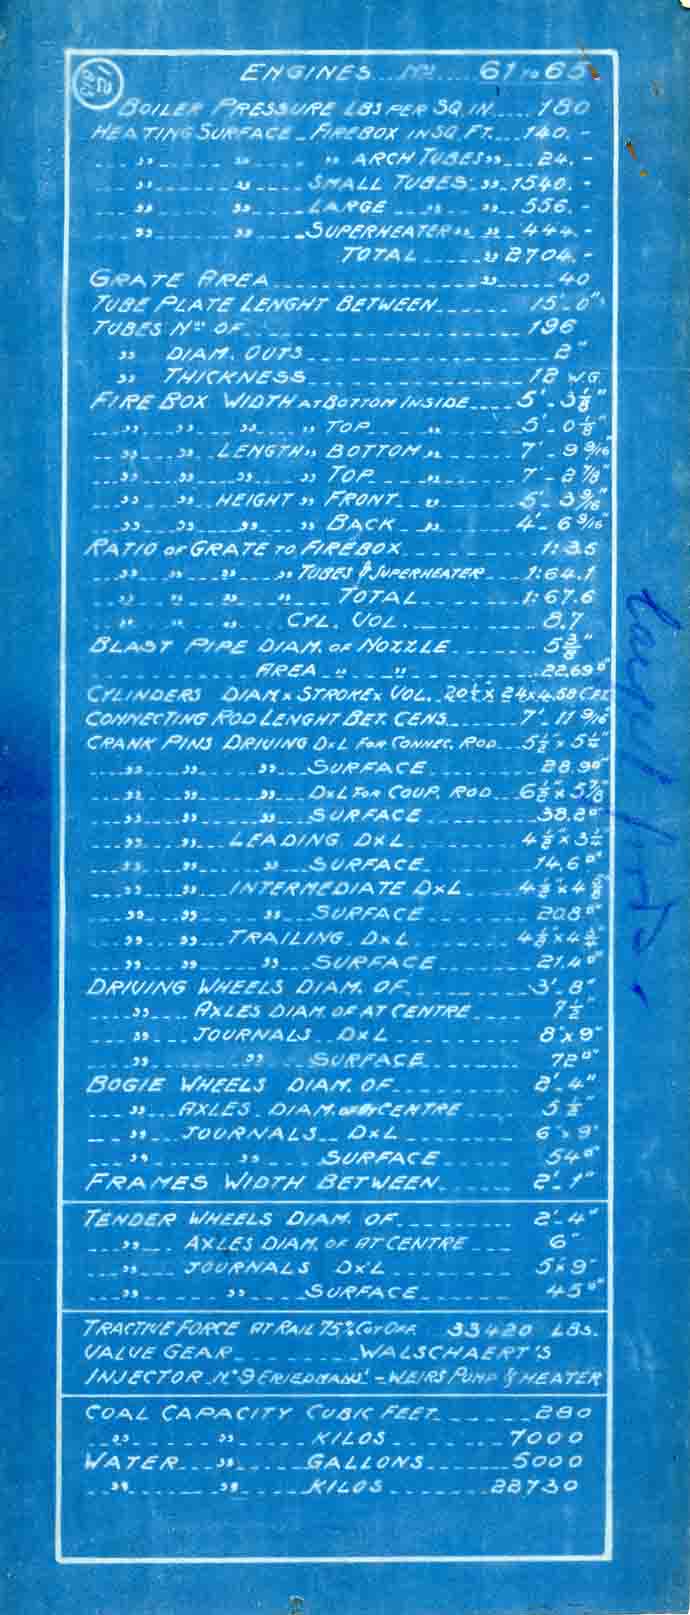 ENGINES Nos 61 TO 65
BOILER PRESSURE LBS PER SQ. IN. 180
HEATING SURFACE FIREBOX IN SQ. FT. 140. -
" " " ARCH TUBES " 24. -
" " SMALL TUBES " 1540. -
" " LARGE " " 556. -
" " SUPERHEATER " " 444. -
TOTAL " 2704. -
GRATE AREA " 40
TUBE PLATE LENGHT BETWEEN 15'-0"
TUBES Nos OF 196
" DIAM. OUTS 2"
" THICKNESS 12 W.G.
FIRE BOX WIDTH AT BOTTOM INSIDE 5'-3 1/8"
" " " " TOP " 5'-0 1/8"
" " LENGTH " BOTTOM " 7'-9 9/16"
" " " " TOP " 7'-2 7/8"
" " HEIGHT " FRONT " 5'-3 9/16"
" " " " BACK " 4'-6 9/16"
RATIO OF GRATE TO FIREBOX 1:3.5
" " " " TUBES & SUPERHEATER 1:64.1
" " " " TOTAL 1:67.6
" " " CYL. VOL. 8.7
BLAST PIPE DIAM. OF NOZZLE 5 3/8"
AREA " " 22.69□"
CYLINDERS DIAM x STROKE x VOL. 20 1/2 x 24 x 4.58 C.FT.
CONNECTING ROD LENGHT BET. CENS. 7'-11 9/16
CRANK PINS DRIVING DxL FOR CONNEC. ROD 5 1/2" x 5 1/4"
" " " SURFACE 28.9□"
" " " DxL FOR COUP. ROD 6 1/2" x 5 7/8"
" " " SURFACE 38.2□"
" " LEADING DxL 4 1/2" x 3 1/4"
" " " SURFACE 14.6□"
" " INTERMEDIATE DxL 4 1/2" x 4 5/8"
" " " SURFACE 20.8□"
" " TRAILING DxL 4 1/2" x 4 3/4"
" " " SURFACE 21.4□"
DRIVING WHEELS DIAM. OF 3'-8"
" AXLES DIAM. OF AT CENTRE 7 1/2"
" JOURNALS DxL 8" x 9"
" " SURFACE 72□"
BOGIE WHEELS DIAM. OF 2'-4"
" AXLES DIAM. OF AT CENTRE 5 1/2"
" JOURNALS DxL 6" x 9"
" " SURFACE 54□"
FRAMES WIDTH BETWEEN 2'-1"
TENDER WHEELS DIAM. OF 2'-4"
" AXLES DIAM. OF AT CENTRE 6"
" JOURNALS DxL 5" x 9"
" " SURFACE 45□"
TRACTIVE FORCE AT RAIL 75% CUT OFF 33420 LBS.
VALVE GEAR WALSCHAERT'S
INJECTOR Nº 9 FRIEDMANS' - WEIRS PUMP & HEATER
COAL CAPACITY CUBIC FEET 280
" " KILOS 7000
WATER " GALLONS 5000
" " KILOS 22730